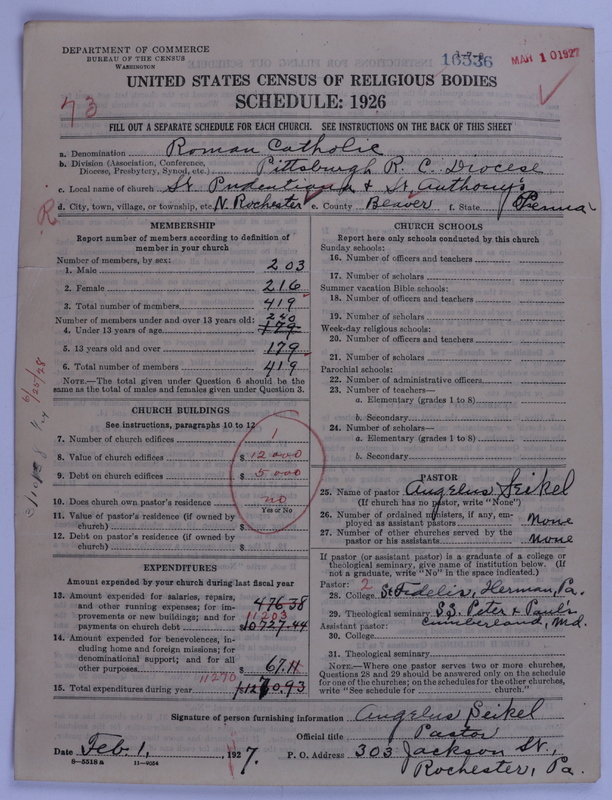 DEPARTMENT OF COMMERCE
BUREAU OF THE CENSUS
WASHINGTON
1-7-8
16536
MAR 10 1927
UNITED STATES CENSUS OF RELIGIOUS BODIES
SCHEDULE: 1926
73
FILL OUT A SEPARATE SCHEDULE FOR EACH CHURCH. SEE INSTRUCTIONS ON THE BACK OF THIS SHEET
a. Denomination Roman Catholic
b. Division (Association, Conference, Diocese, Presbytery, Synod, etc.) Pittsburgh R. C. Diocese
c. Local name of church St. Pudentiana & St. Anthony's
R d. City, town, village, or township, etc. N. Rochester e. County Beaver f. State Penna
MEMBERSHIP
Report number of members according to definition of
member in your church
Number of members, by sex:
1. Male 203
2. Female 216
3. Total number of members 419
Number of members under and over 13 years old: 240
4. Under 13 years of age 179
5. 13 years old and over 179
6. Total number of members 419
NOTE.—The total given under Question 6 should be the
same as the total of males and females given under Question 3.
CHURCH BUILDINGS
See instructions, paragraphs 10 to 12
7. Number of church edifices 1
8. Value of church edifices $ 12000
9. Debt on church edifices $ 5000
10. Does church own pastor's residence no
Yes or No
11. Value of pastor's residence (if owned by
church) $
12. Debt on pastor's residence (if owned by
church) $
EXPENDITURES
Amount expended by your church during last fiscal year
13. Amount expended for salaries, repairs,
and other running expenses; for im-
provements or new buildings; and for
payments on church debt 476.38
11203
$10727.44
14. Amount expended for benevolences, in-
cluding home and foreign missions; for
denominational support; and for all
other purposes $ 67.11
11270
15. Total expenditures during year
CHURCH SCHOOLS
Report here only schools conducted by this church
Sunday schools:
16. Number of officers and teachers
17. Number of scholars
Summer vacation Bible schools:
18. Number of officers and teachers
19. Number of scholars
Week-day religious schools:
20. Number of officers and teachers
21. Number of scholars
Parochial schools:
22. Number of administrative officers
23. Number of teachers—
a. Elementary (grades 1 to 8)
b. Secondary
24. Number of scholars—
a. Elementary (grades 1 to 8)
b. Secondary
PASTOR
25. Name of pastor Angelus Seikel
(If church has no pastor, write "None")
26. Number of ordained ministers, if any, em-
ployed as assistant pastors None
27. Number of other churches served by the
pastor or his assistants None
If pastor (or assistant pastor) is a graduate of a college or
theological seminary, give name of institution below. (If
not a graduate, write "No" in the space indicated.)
Pastor: 2
28. College St Fidelis, Herman, Pa.
29. Theological seminary SS. Peter & Paul's
Assistant pastor: Cumberland, Md.
30. College
31. Theological seminary
NOTE.—Where one pastor serves two or more churches,
Questions 28 and 29 should be answered only on the schedule
for one of the churches; on the schedules for the other churches,
write "See schedule for church."
Signature of person furnishing information Angelus Seikel
Official title Pastor
Date Feb. 1, 1927. P. O. Address 303 Jackson St.,
Rochester, Pa.
8—5518 a 11—9054